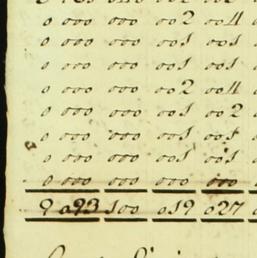 0 000 000 002 004
0 000 000 001 001
0 000 000 001 001
0 000 000 002 004
0 000 000 001 002
0 000 000 001 001
0 000 000 001 001
0 000 000 000 000
9 093 100 019 027